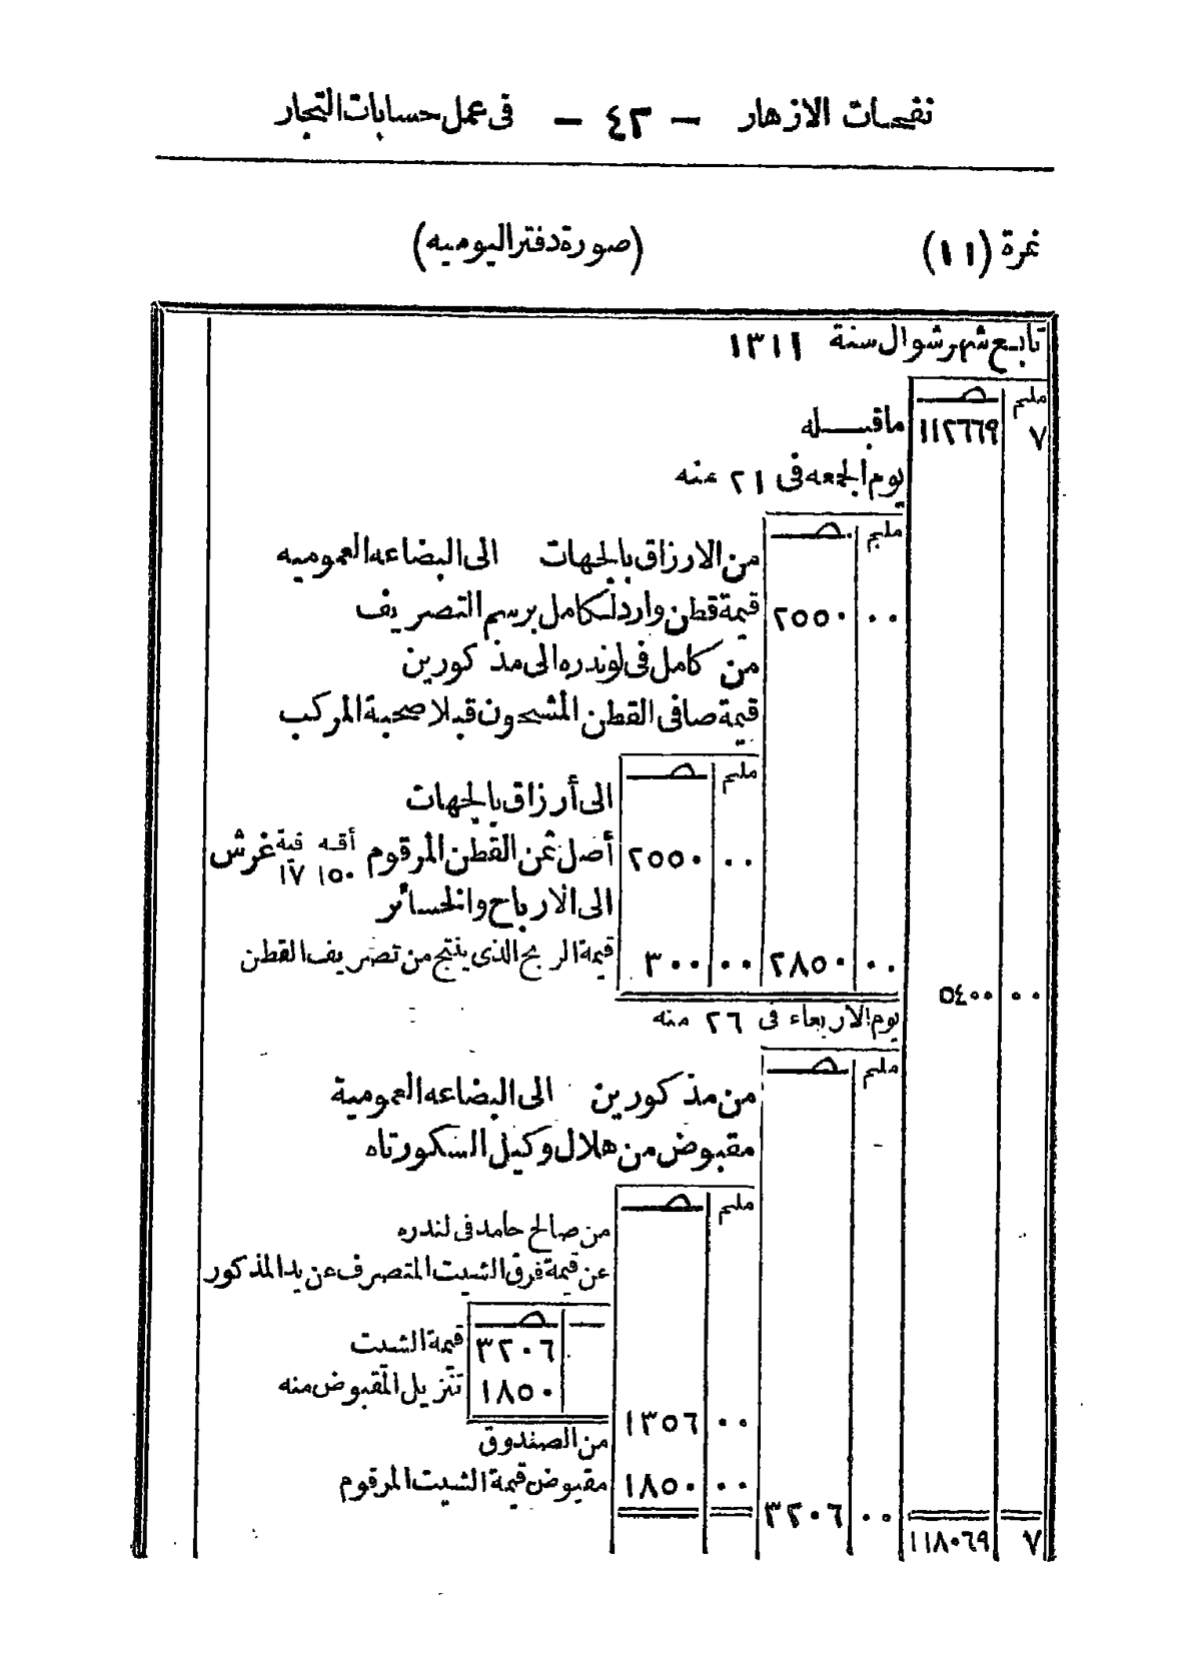 نفحات الازهار - ٤٢ - فى عمل حسابات التجار
نمرة (١١) (صورة دفتر اليوميه)
تابع شهر شوال سنة ١٣١١
مليم
٧ ١١٢٦٦٩ ماقبله
يوم الجمعه فى ٢١ منه
مليم
من الارزاق بالجهات الى البضاعه العموميه
٠٠ ٢٥٥٠ قيمة قطن وارد لكامل برسم التصريف
من كامل فى لوندره الى مذكورين
قيمة صافى القطن المشحون قبلا صحبة المركب
مليم
الى أرزاق بالجهات
٠٠ ٢٥٥٠ أصل ثمن القطن المرقوم أقه ١٥٠ فية ١٧ غرش
الى الارباح والخسائر
٠٠ ٢٨٥٠ ٠٠ ٣٠٠ قيمة الربح الذى ينتج من تصريف القطن
٠٠ ٥٤٠٠
يوم الاربعاء فى ٢٦ منه
مليم
من مذكورين الى البضاعه العمومية
مقبوض من هلال وكيل السكورتاه
مليم
من صالح حامد فى لندره
عن قيمة فرق الشيت المتصرف عن يد المذكور
٣٢٠٦ قيمة الشيت
١٨٥٠ تنزيل المقبوض منه
٠٠ ١٣٥٦
من الصندوق
٠٠ ١٨٥٠ مقبوض قيمة الشيت المرقوم
٠٠ ٣٢٠٦
٧ ١١٨٠٦٩